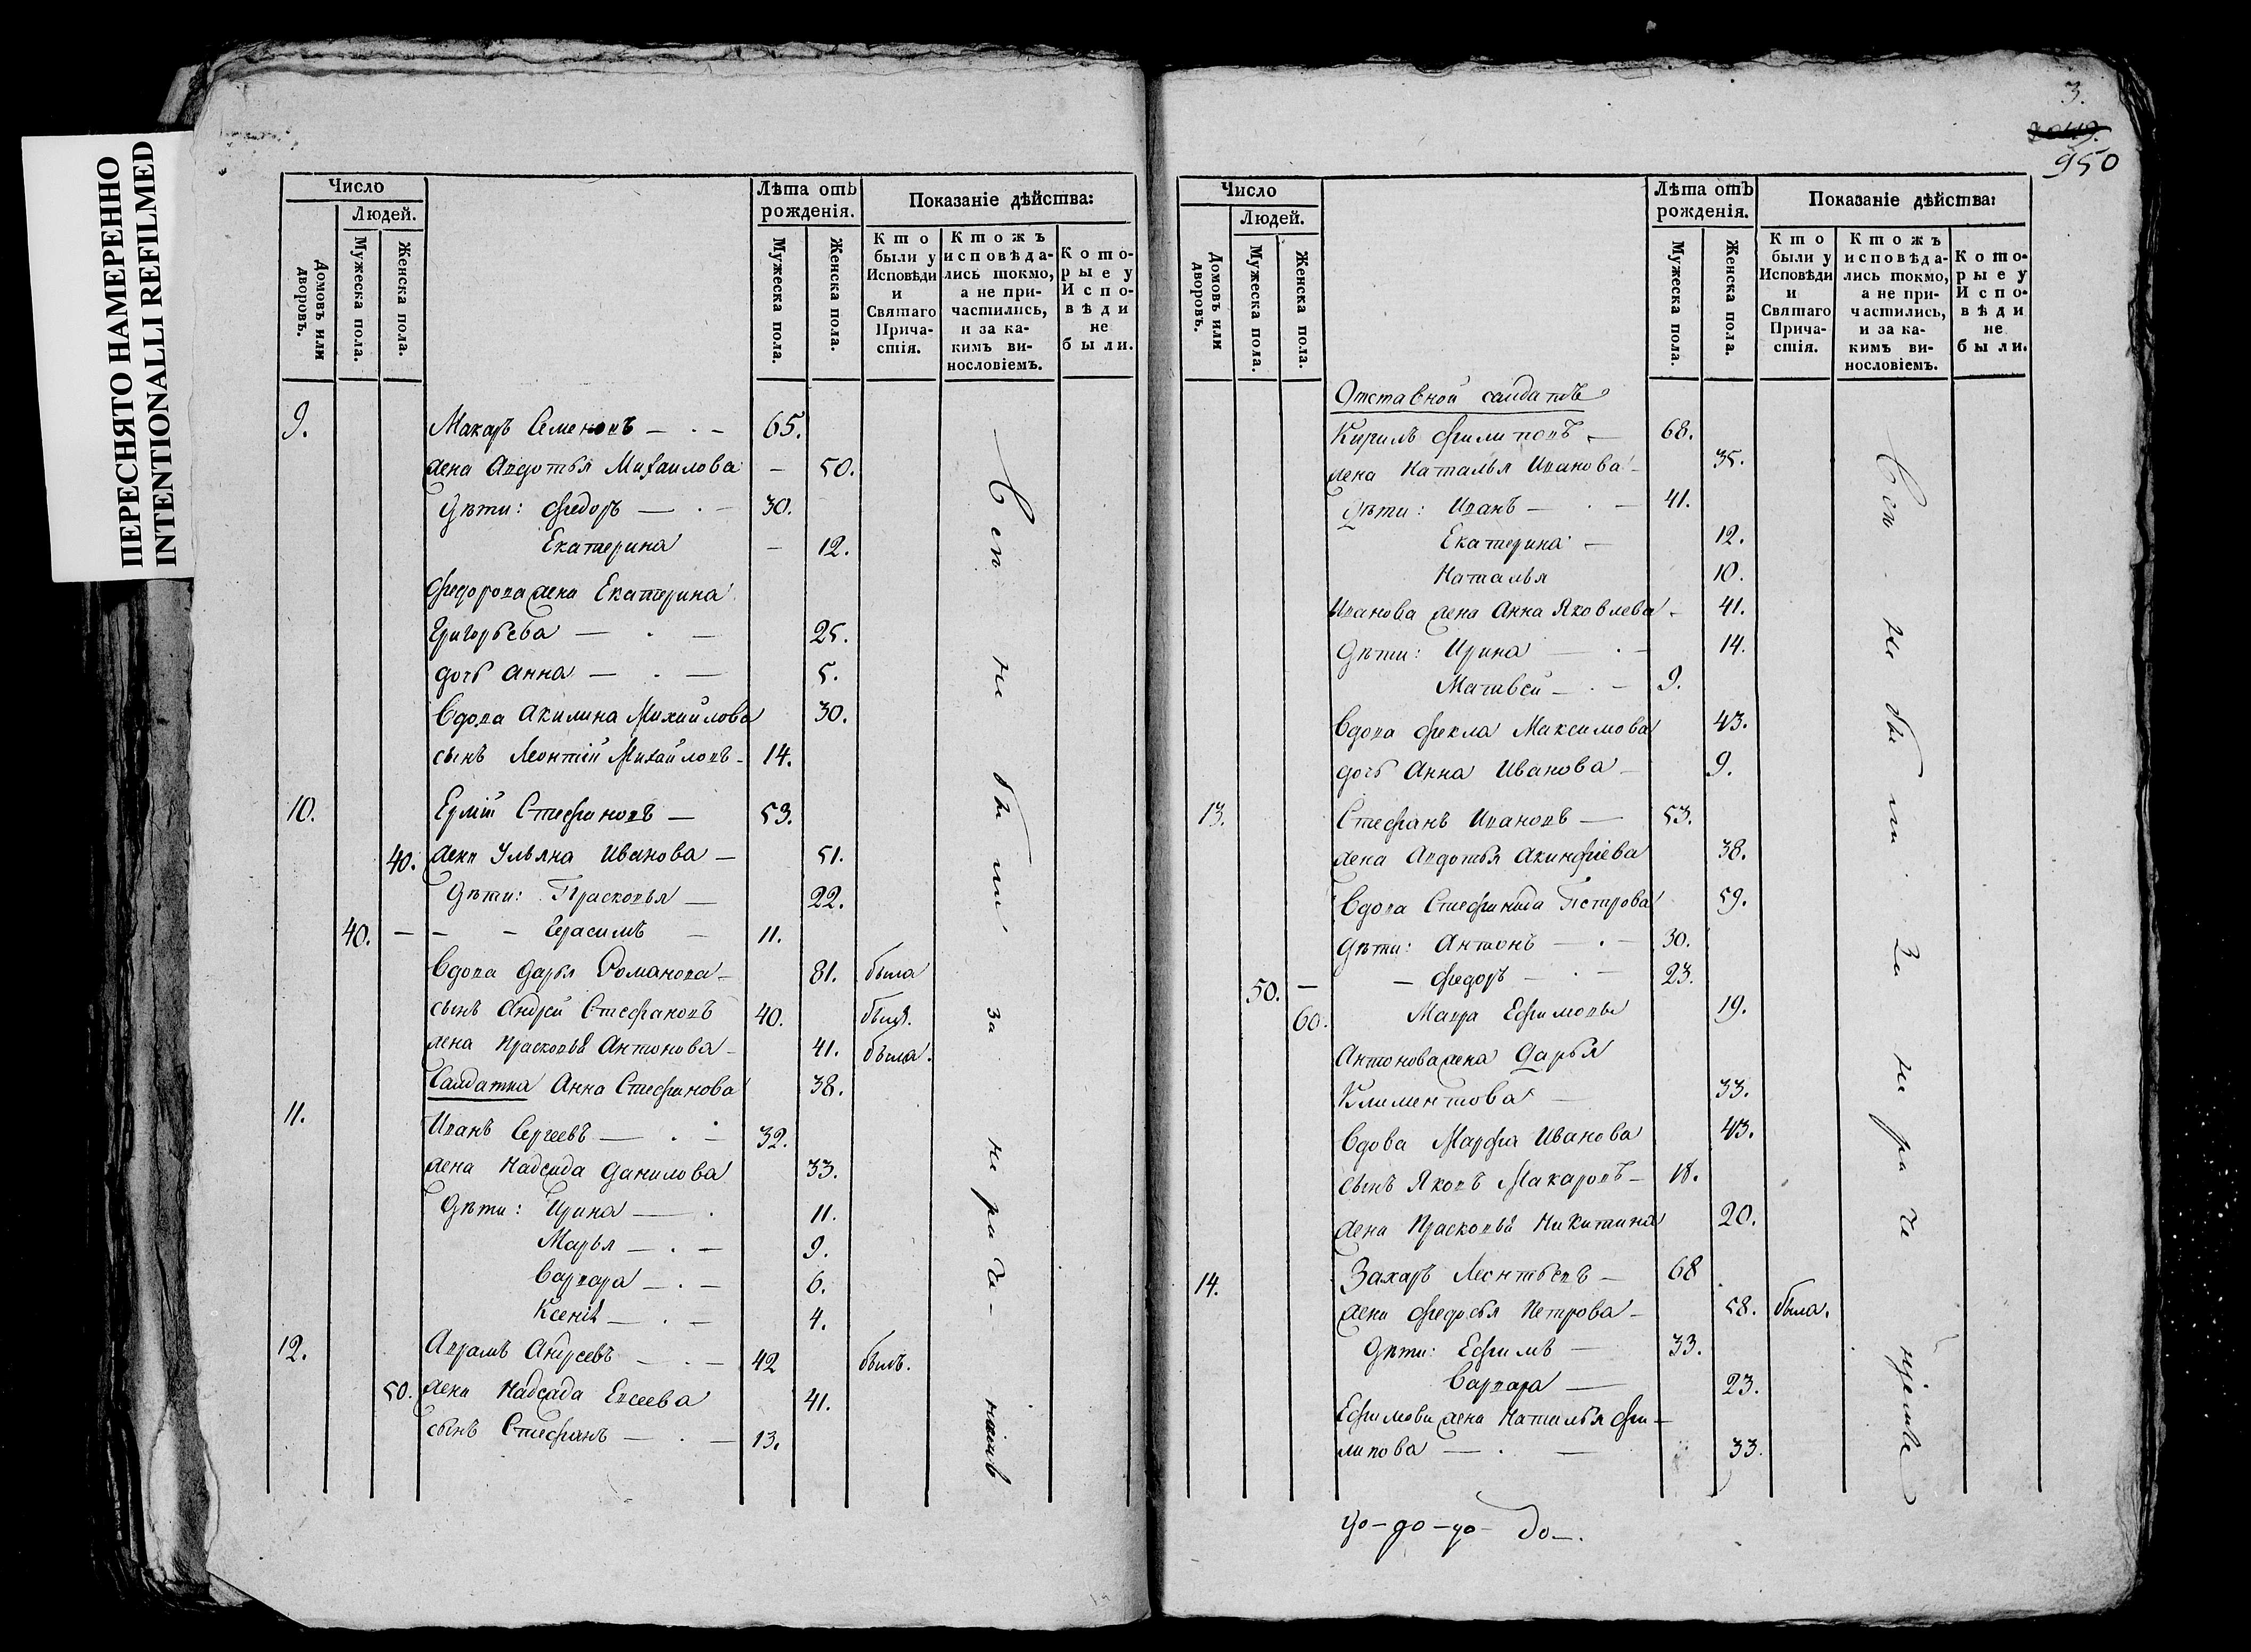 ПЕРЕСНЯТО НАМЕРЕННО
INTENTIONALLI REFILMED
Число
Людей.
Домовъ или дворовъ.
Мужеска пола.
Женска пола.
Лѣта отъ рожденія.
Мужеска пола.
Женска пола.
Показаніе дѣйства:
Кто были у Исповѣди и Святаго Прича-стія.
Ктожъ исповѣда-лись токмо, а не при-частились, и за ка-кимъ ви-нословіемъ.
Кото-рые у Испо-вѣди не были.
9. Макаръ Семеновъ — . — 65.
жена Авдотья Михаилова — 50.
Дѣти: Федоръ — . — 30.
Екатерина — 12.
Федорова жена Екатерина
Григорьева — . — 25.
дочь Анна — . — 5.
Вдова Акилина Михайлова 30.
сынъ Леонтій Михайловъ — 14.
10. Ермій Стефановъ — 53.
40. жена Ульяна Иванова — 51.
Дѣти: Прасковья — 22.
40. — — — Герасимъ — 11.
Вдова Дарья Романова — 81. была
сынъ Андрей Стефановъ 40. былъ.
жена Прасковья Антонова — 41. была.
Салдатка Анна Стефанова 38.
11. Иванъ Сергеевъ — . — 32.
жена Надежда Данилова 33.
Дѣти: Ирина — . 11.
Марья — . — 9.
Варвара — . — 6.
Ксенія — . — 4.
12. Аврамъ Андреевъ — . — 42 былъ.
50. жена Надежда Евсеева 41.
сынъ Стефанъ — . — 13.
Всѣ не были за нераче-ніемъ
3.
950
Число
Людей.
Домовъ или дворовъ.
Мужеска пола.
Женска пола.
Лѣта отъ рожденія.
Мужеска пола.
Женска пола.
Показаніе дѣйства:
Кто были у Исповѣди и Святаго Прича-стія.
Ктожъ исповѣда-лись токмо, а не при-частились, и за ка-кимъ ви-нословіемъ.
Кото-рые у Испо-вѣди не были.
Отставной салдатъ
Кирилъ Филиповъ — 68.
жена Наталья Иванова — 35.
Дѣти: Иванъ — . — 41.
Екатерина — 12.
Наталья 10.
Иванова жена Анна Яковлева — 41.
Дѣти: Ирина — . — 14.
Матвей — . — 9.
Вдова Фекла Максимова 43.
дочь Анна Иванова — 9.
13. Стефанъ Ивановъ — 53.
жена Авдотья Акинфіева 38.
Вдова Стефанида Петрова 59.
Дѣти: Антонъ — . — 30.
50. — — Федоръ — . — 23.
60. Мавра Ефимовы 19.
Антонова жена Дарья
Климентова — 33.
Вдова Марфа Иванова 43.
сынъ Яковъ Макаровъ — 18.
жена Прасковья Никитина 20.
14. Захаръ Леонтьевъ — 68
жена Федосья Петрова — 58. была.
Дѣти: Ефимъ — 33.
Варвара — 23.
Ефимова жена Наталья Фи-
липова — . — 33.
Всѣ не были за нераченіемъ